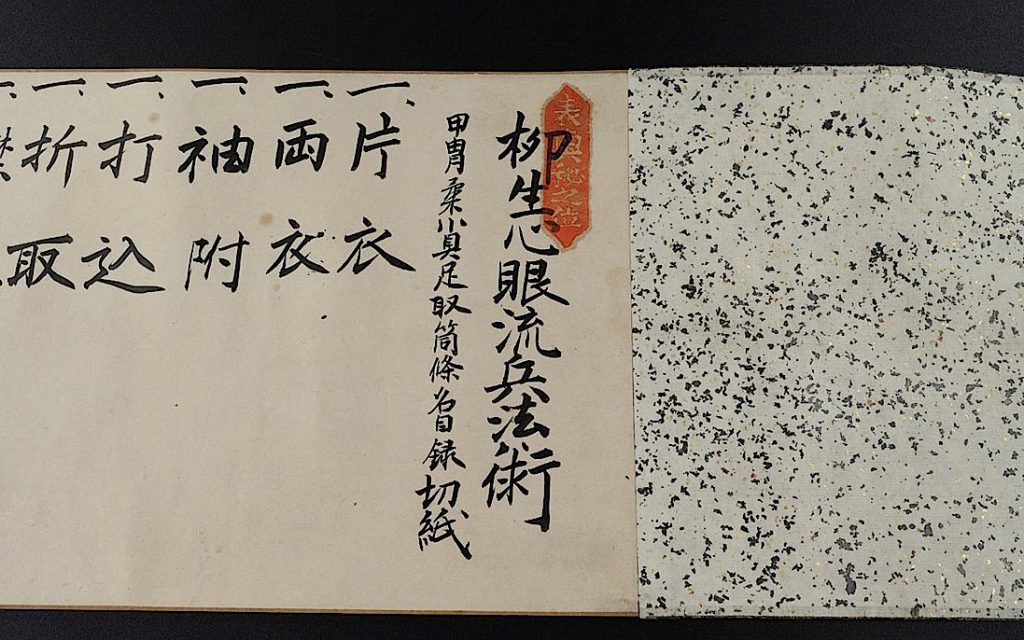 柳生心眼流兵法術
甲冑柔小具足取筒條名目録切紙
一、片衣
一、両衣
一、袖附
一、打込
一、折取